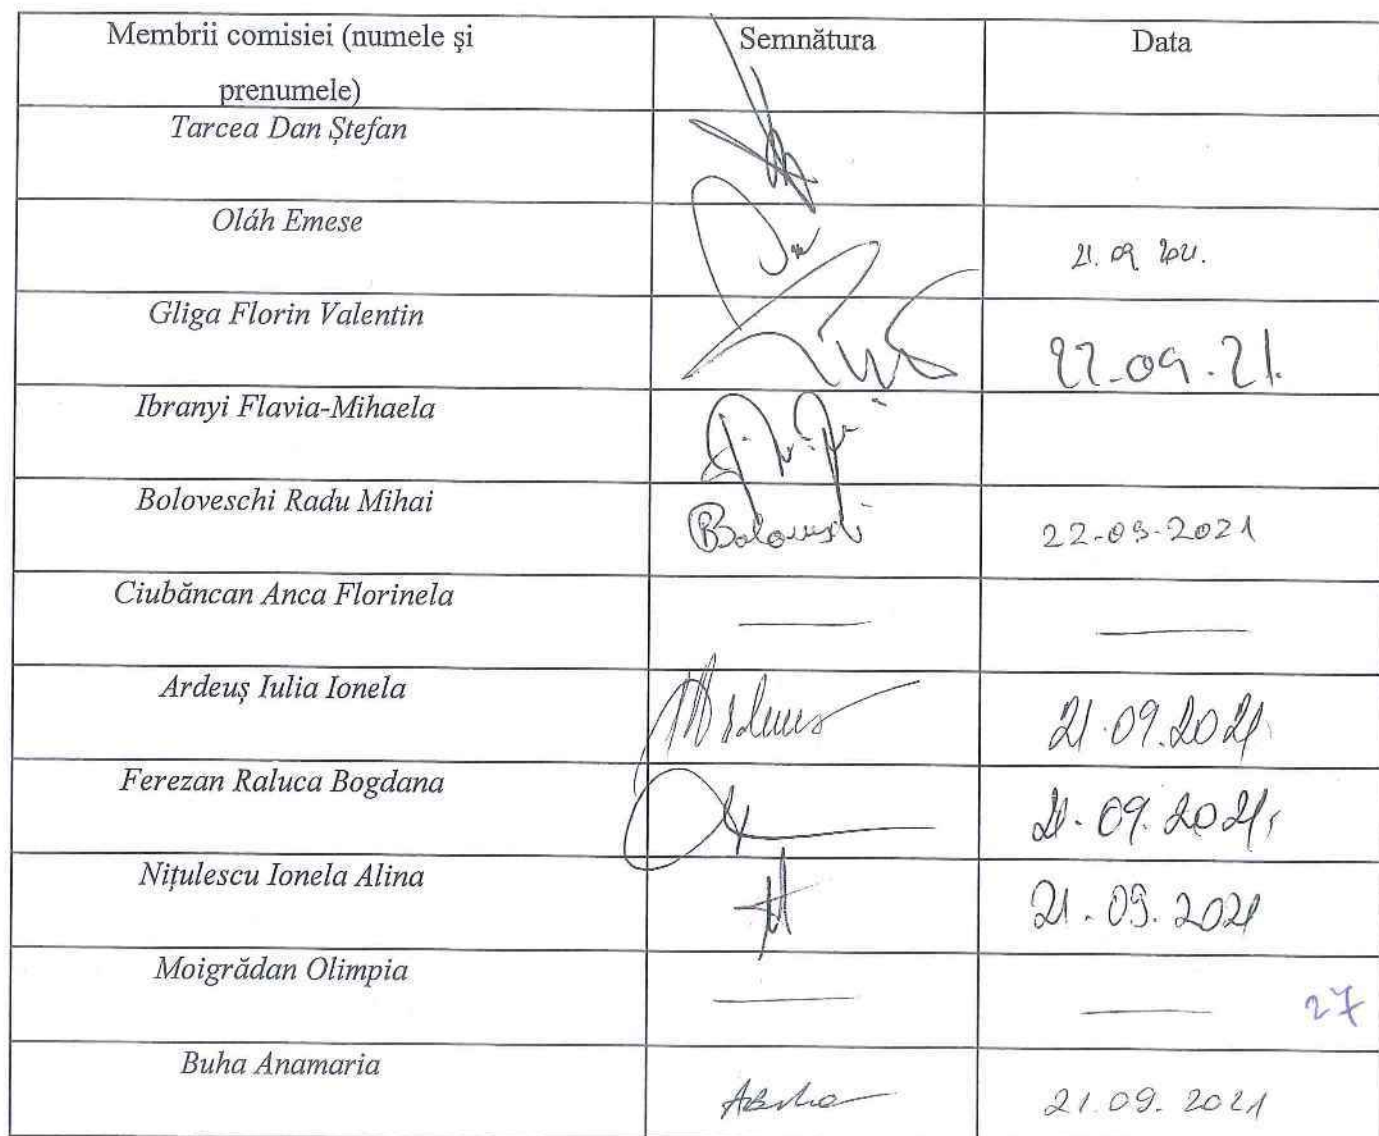 Membrii comisiei (numele și
prenumele)
Semnătura
Data
Tarcea Dan Ștefan
Oláh Emese
21.09.2021.
Gliga Florin Valentin
22.09.21.
Ibranyi Flavia-Mihaela
Boloveschi Radu Mihai
22.09.2021
Ciubăncan Anca Florinela
Ardeuș Iulia Ionela
21.09.2021.
Ferezan Raluca Bogdana
21.09.2021.
Nițulescu Ionela Alina
21.09.2021
Moigrădan Olimpia
27
Buha Anamaria
21.09.2021